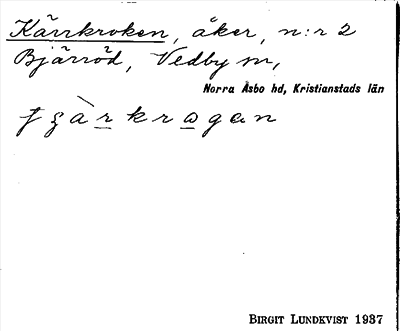 Kärrkroken, åker, n:r 2
Bjärröd, Vedby sn,
Norra Åsbo hd, Kristianstads län
BIRGIT LUNDKVIST 1937